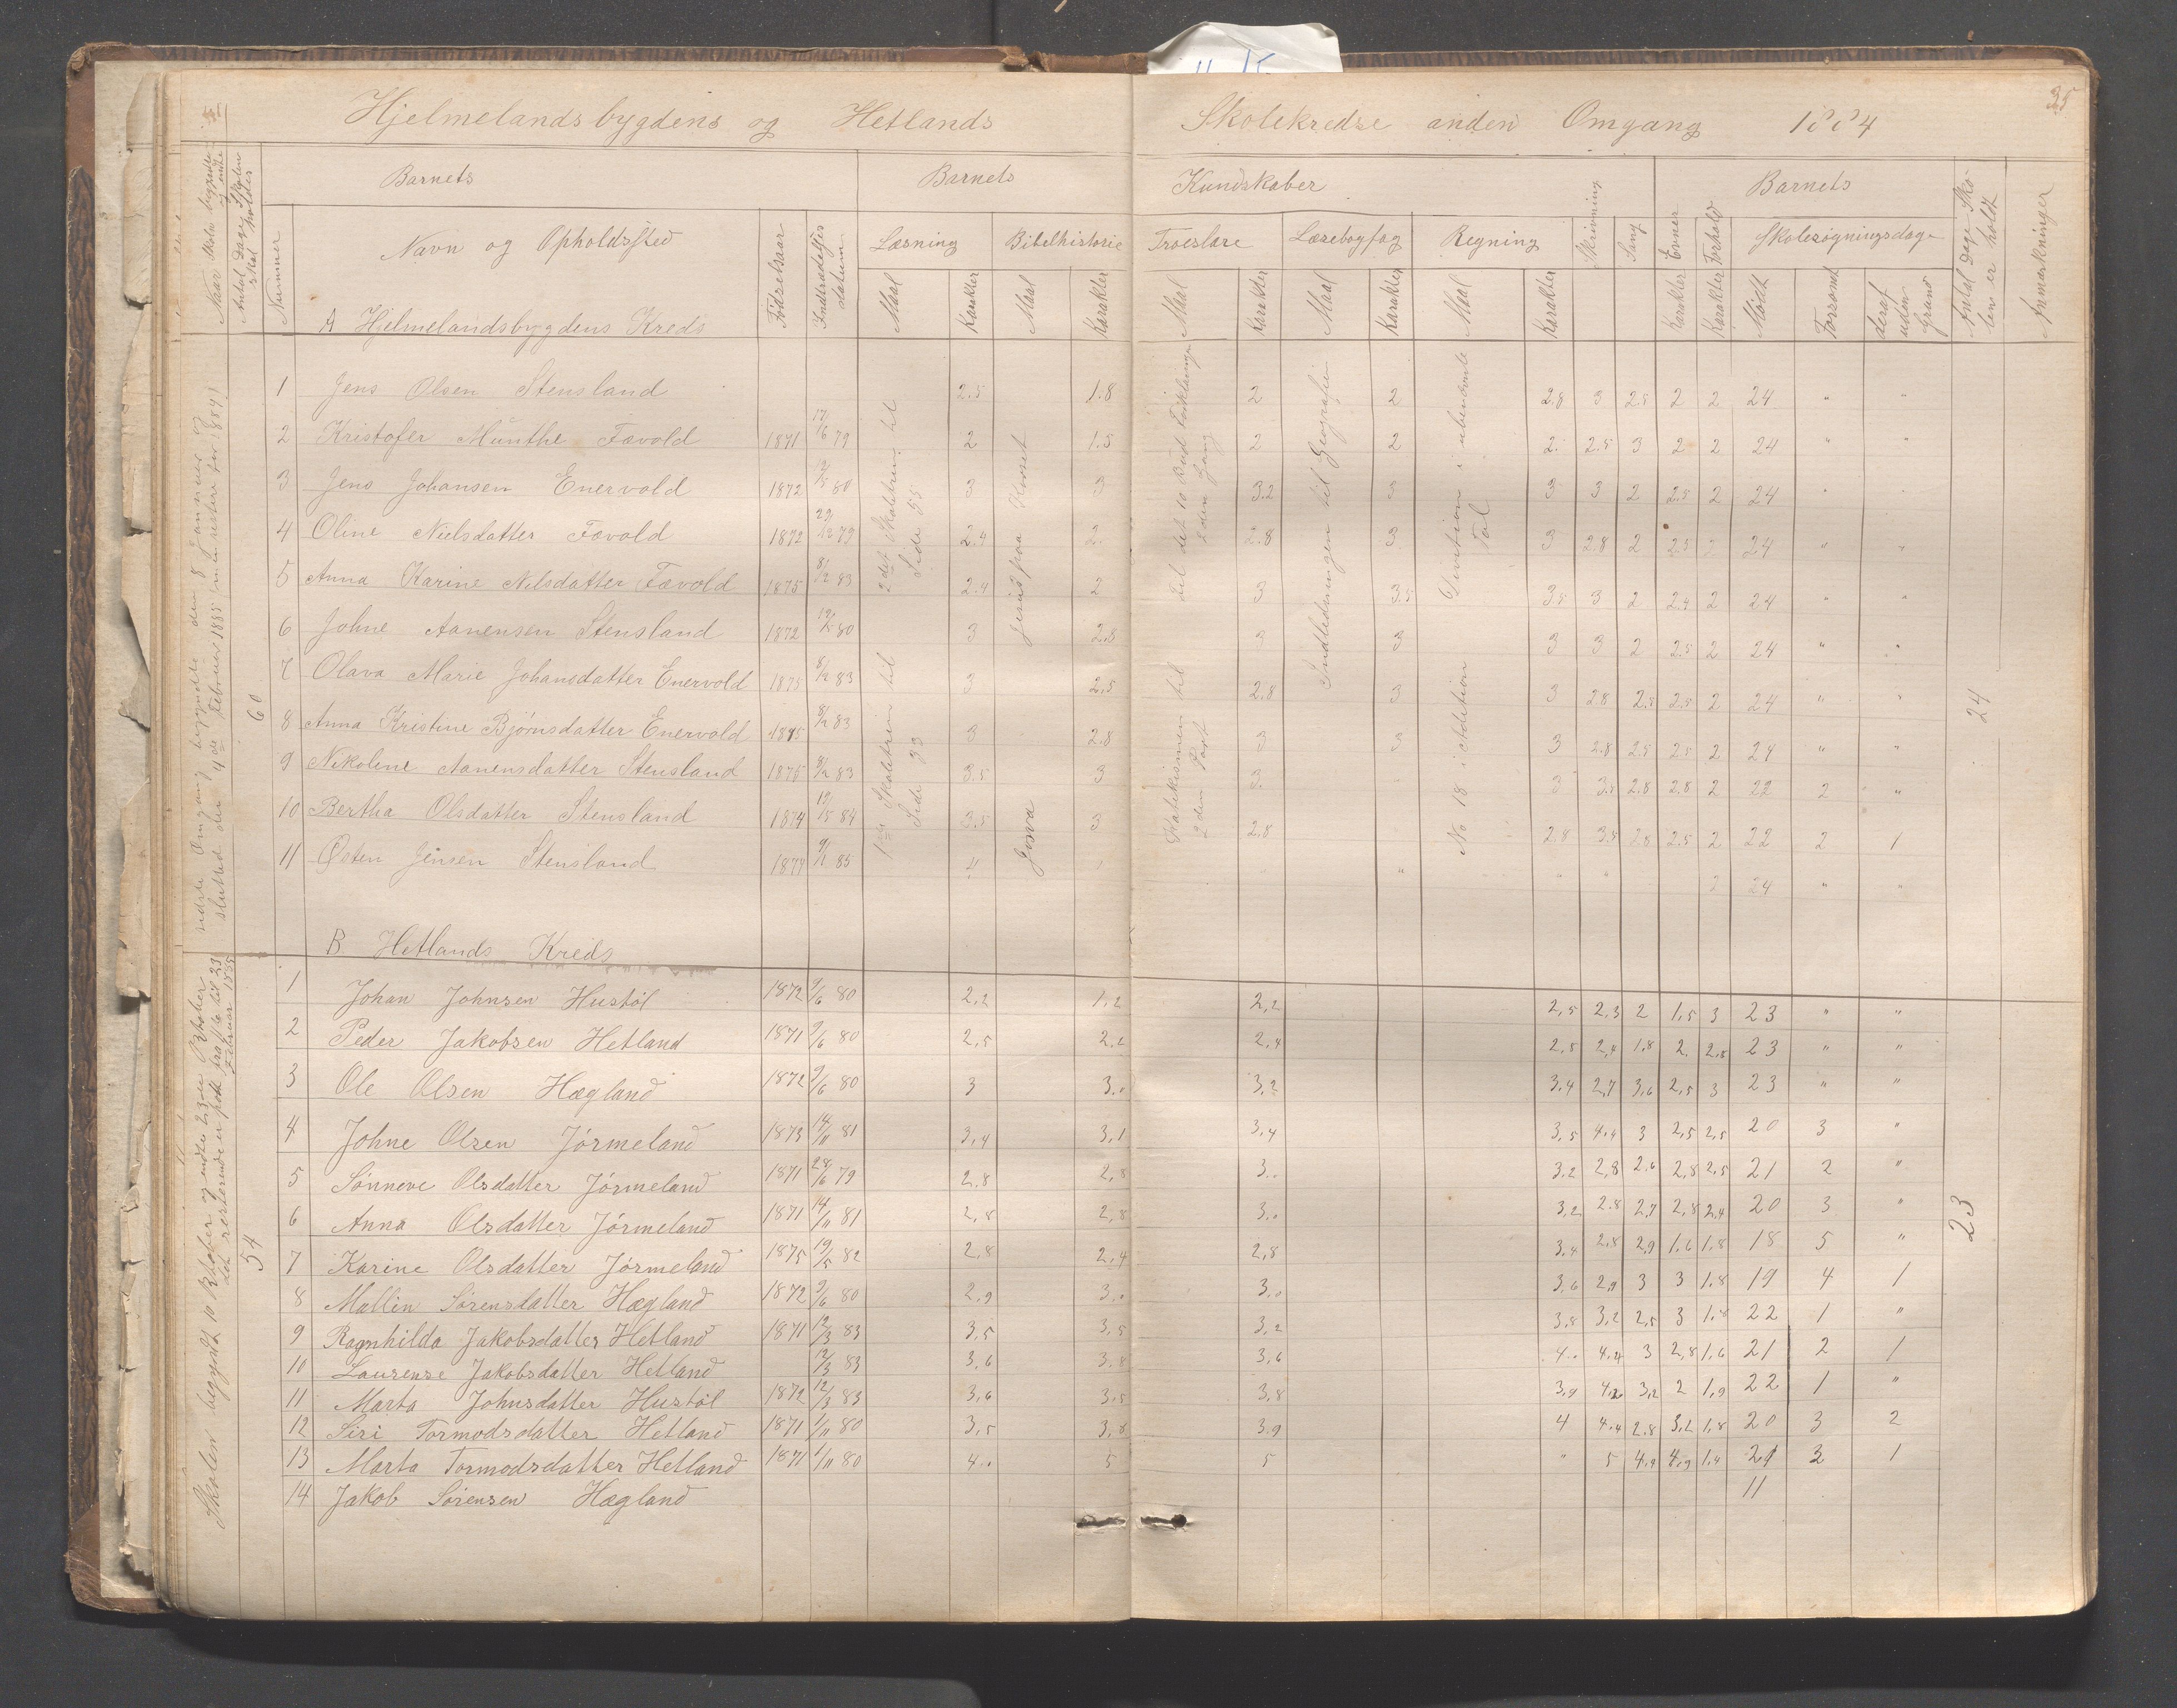 35
Hjelmelandsbygdens og Hetlands Skolekredse anden Omgang 1884
Naar Skolen begynder og ende
Antal Dage Skolen skal holdes
Nummer
Barnets
Navn og Opholdssted
Fødselsaar
Indtrædelses datum
Barnets Kundskaber
Læsning Bibelhistorie Troeslære Læsebogfag Regning Skrivning Sang
Maal Karakter Maal Karakter Maal Karakter Maal Karakter Maal Karakter
Barnets
Evner Forhold Skolesøgningsdage
Karakter Karakter Mødt Forsømt deraf uden Grund
Antal Dage Skolen er holdt
Anmærkninger
A Hjelmelandsbygdens Kreds
1 Jens Olsen Stensland 2.5 1.8 2 2 2.8 3 2.5 2 2 24 " "
2 Kristofer Munthe Fævold 1871 17/6 79 2 1.5 2 2 2. 2.5 3 2 2 24 " "
3 Jens Johansen Enervold 1872 80 3 3 3.2 3 3 3 2 2.5 2 24 " "
4 Oline Nielsdatter Fævold 1872 29/12 79 2.4 2. 2.8 3 3 2.8 2 2.5 2 24 " "
5 Anna Karine Nilsdatter Fævold 1875 8/2 83 2.4 2 3 3.5 3.5 3 2 2.4 2 24 " "
6 Johne Aanensen Stensland 1872 80 3 2.8 3 3 3 3 2 2.5 2 24 " "
7 Olava Marie Johansdatter Enervold 1875 8/2 83 3 2.5 2.8 3 3 2.8 2.5 2.5 2 24 " "
8 Anna Kristine Bjørnsdatter Enervold 1875 8/2 83 3 2.8 3 3 3 2.8 2.5 2.5 2 24 " "
9 Nikoline Aanensdatter Stensland 1875 8/2 83 3.5 3 3. 3 3.5 2.8 2.8 2 22 2 "
10 Bertha Olsdatter Stensland 1874 84 3.5 3 2.8 2.8 3.5 2.8 2.5 2 22 2 1
11 Østen Jensen Stensland 1877 9/1 85 4 " " " 2 24 " "
2det Skoletrin til Side 55
1ste Skoletrin til Side 93
Jesus paa Korset
Josva
Til det 10 Bud Forklaringe 2den Gang
Katekismen til 2den Part
Indledningen til Geografien
Division i ubenævnte Tal
No 18 i Addition
60
24
B Hetlands Kreds
1 Johan Johnsen Hustøl 1872 9/6 80 2,2 1,2 2,2 2,5 2,3 2 1,5 3 23 " "
2 Peder Jakobsen Hetland 1871 9/6 80 2,5 2,2 2,4 2,5 2,4 1,8 2. 2,5 23 " "
3 Ole Olsen Hægland 1872 9/6 80 3 3.. 3,2 3.4 2,7 3,6 2,5 3 23 " "
4 Johne Olsen Jørmeland 1873 14/11 81 3,4 3,1 3,4 3,5 4.4 3 2,5 2,5 20 3 "
5 Sønneve Olsdatter Jørmeland 1871 28/6 79 2.8 2,8 3.. 3.2 2,8 2.6 2,8 2,5 21 2 "
6 Anna Olsdatter Jørmeland 1871 14/11 81 2,8 2,8 3.. 3,2 2.8 2,7 2,8 2,4 20 3 "
7 Karine Olsdatter Jørmeland 1875 19/5 82 2,8 2,4 2,8 3,4 2,8 2,9 1,6 1,8 18 5 "
8 Mallin Sørensdatter Hægland 1872 9/6 80 2,9 3.. 3.. 3,6 2,9 3 3 1,8 19 4 1
9 Ragnhilda Jakobsdatter Hetland 1871 12/3 83 3,5 3,5 3,2 3,8 3,2 2,5 3 1,8 22 1 "
10 Laurense Jakobsdatter Hetland 12/3 83 3,6 3,8 3,6 4.. 4.4 3 2,8 1,6 21 2 1
11 Marta Johnsdatter Hustøl 1872 12/3 83 3,6 3,5 3,8 3,9 4,2 3,2 2 1,9 22 1 "
12 Siri Tormodsdatter Hetland 1871 1/11 80 3,5 3,8 3.9 4 4.4 2.8 3,2 1,8 20 3 2
13 Marta Tormodsdatter Hetland 1871 1/11 80 4.. 5 5 " 5 4,9 4,9 1,4 21 2 1
14 Jakob Sørensen Hægland 11
54
23
Omgang begyndte den 8 Januar
sluttet den 4de Februar 1885
Skolen begyndt 10 Oktober og endte 23en Oktober
det resterende er holdt fra 6 til 23 Februar 1885